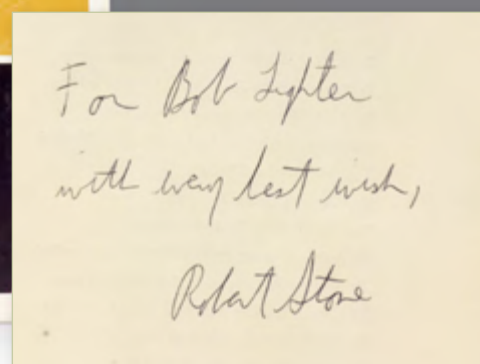 For Bob Lighter
with very best wish,
Robert Stone